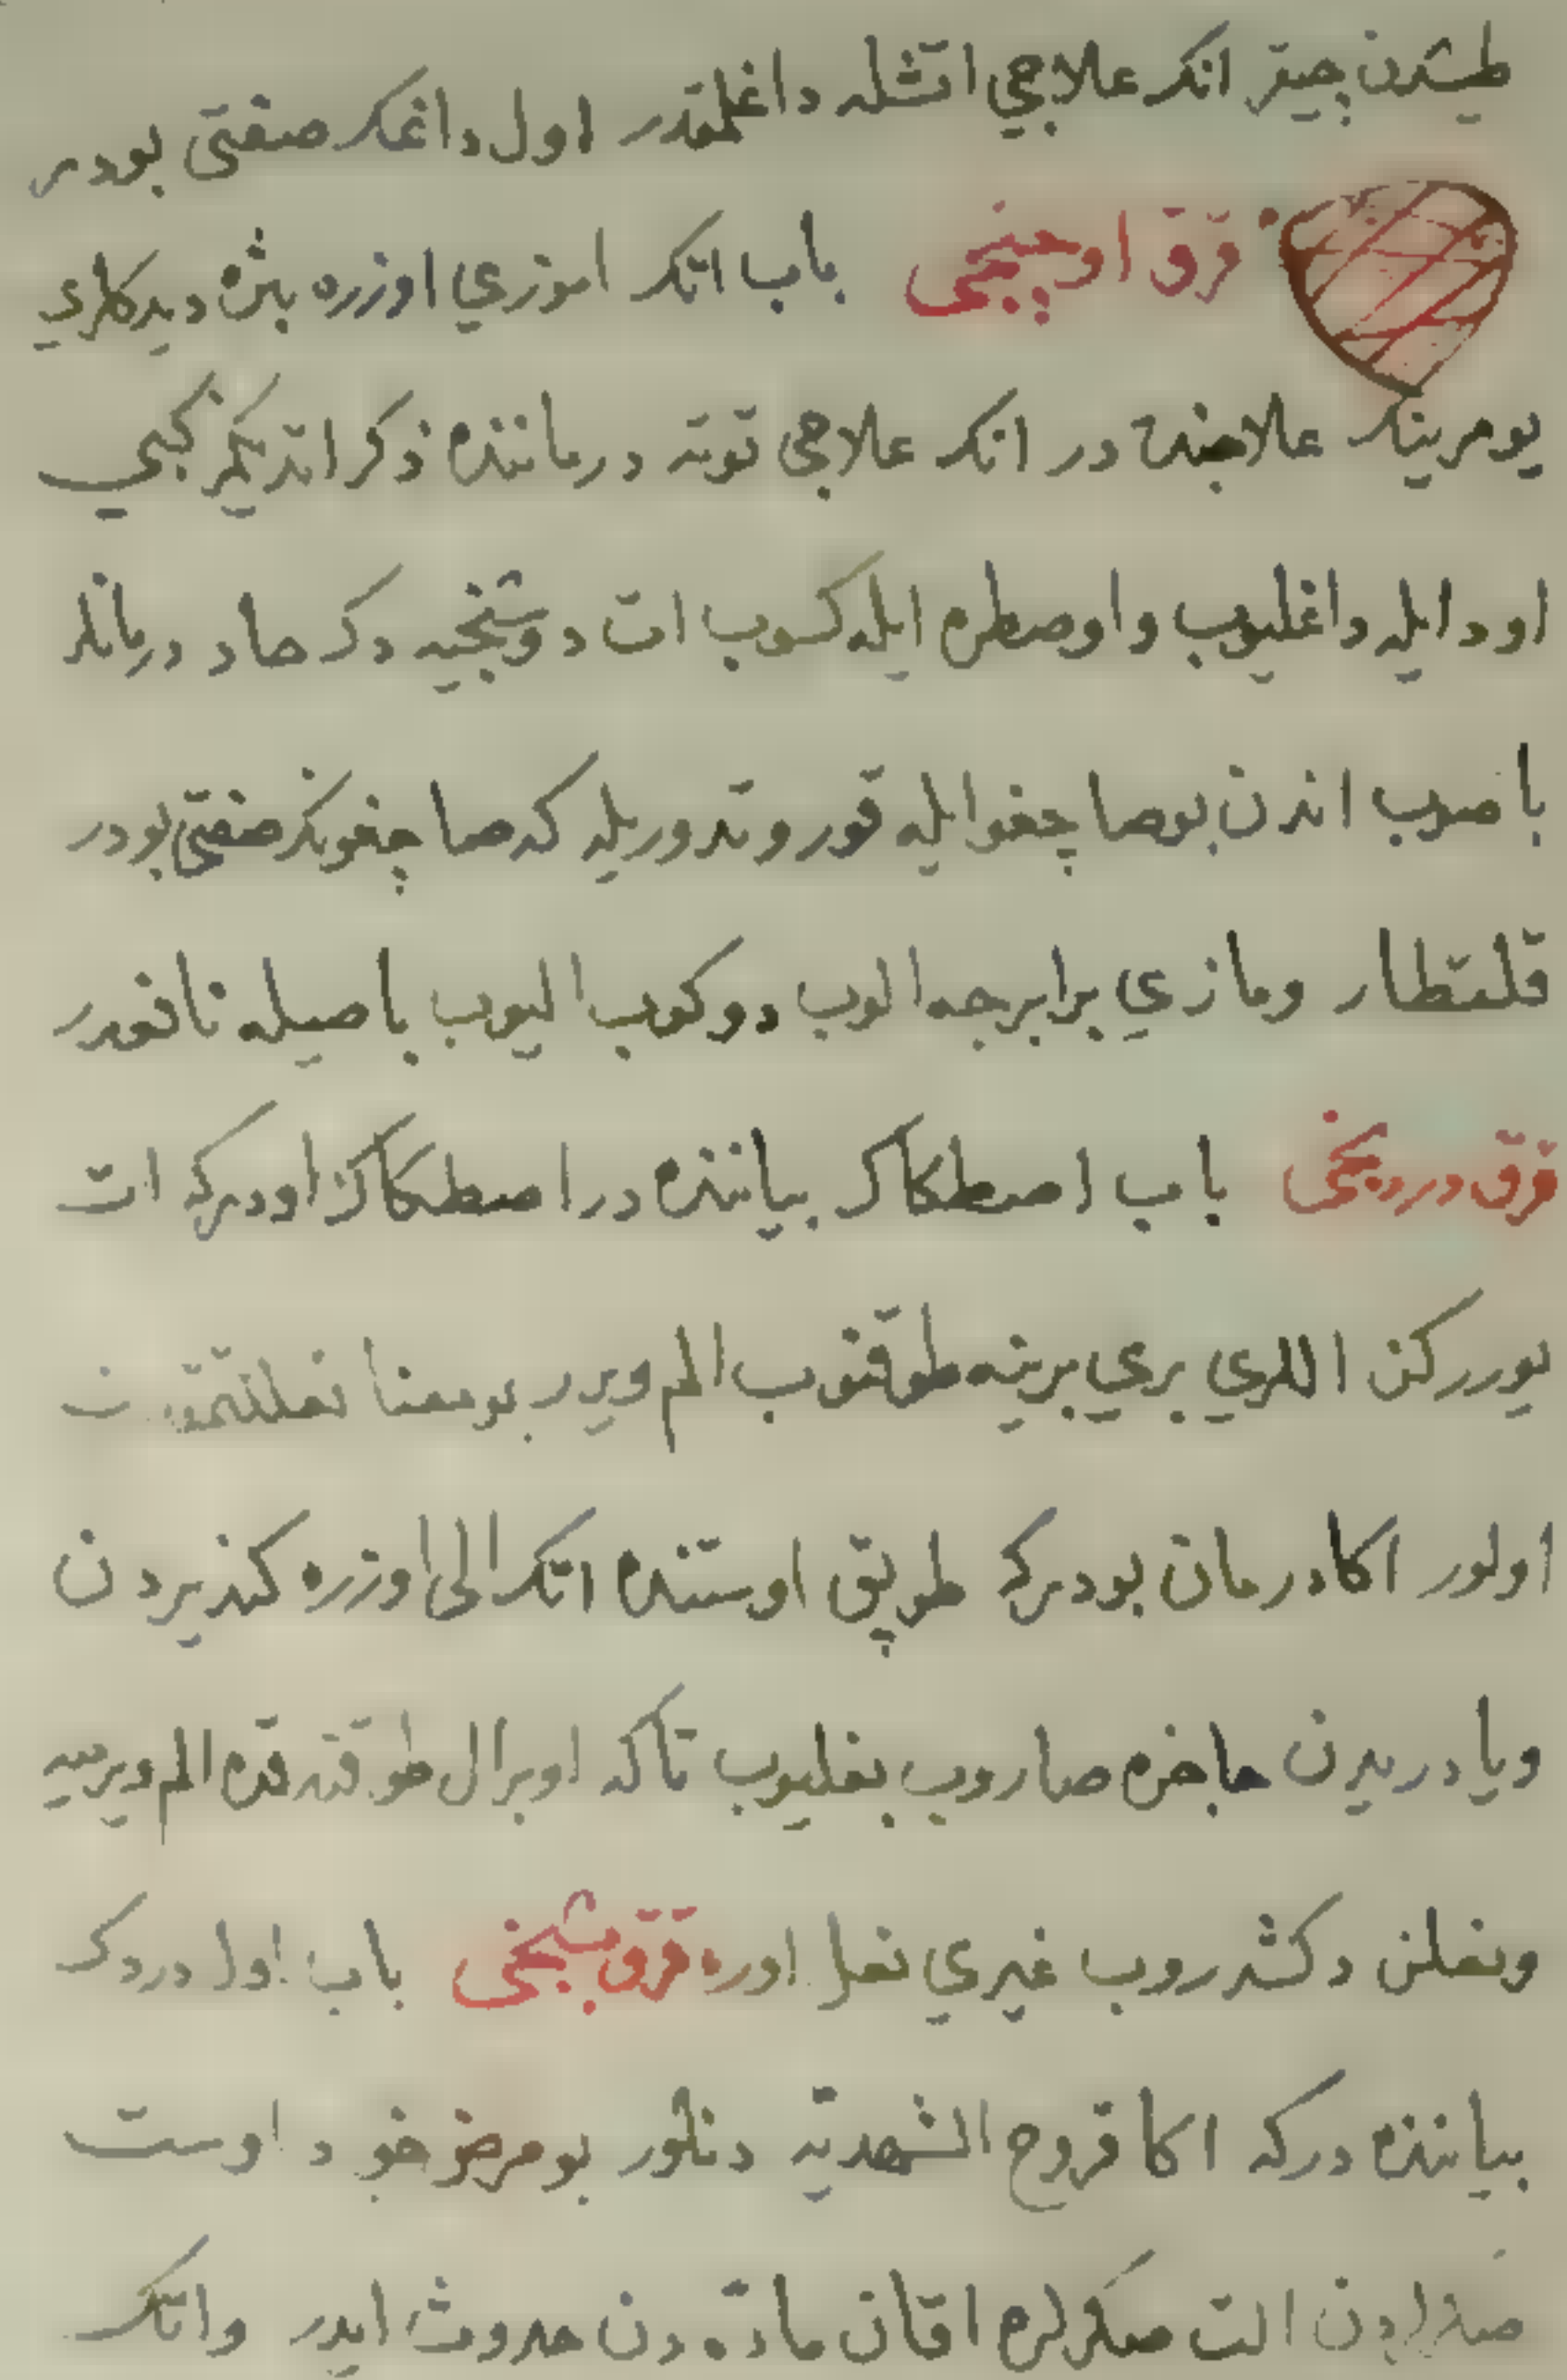 طيشردن چيقر انك علاجي اتشله داغلمقدر اول داغك صفتى بودر
قرق اوچنجى باب اتك اموزي اوزره بثره ديدكلري
يومرينك علاجنده در انك علاجى توته درماننده ذكر اتديكمز كبي
اود ايله داغليوب و اوصطره ايله كسوب ات دوشنجيه دك حاد درمانلر
باصوب اندن بو صاچغو ايله قورو تدوريله كه صاچغونك صفتى بودر
قلنقطار ومازي برابرجه الوب دوكوب اليوب باصيله نافعدر
قرق دردنجى باب اصطكاك بياننده در اصطكاك اودركه ات
يورركن اللري بري برينه طوقنوب الم ويرر بو معنا نعللنمقدن
اولور اكا درمان بودركه طوپق اوستنده اتك الى اوزره كنديردن
ويا دريدن حاخره صاروب بغليوب تاكه اوبر ال طوقندقده الم ويرميه
ونعلن دكشدروب غيري نعل اوره قرق بشنجى باب اول دردك
بياننده دركه اكا قروح الشهديّه دنلور بو مرض خود اوست
صكرلردن الت صكرلره اقان مادّه دن حدوث ايدر واتك